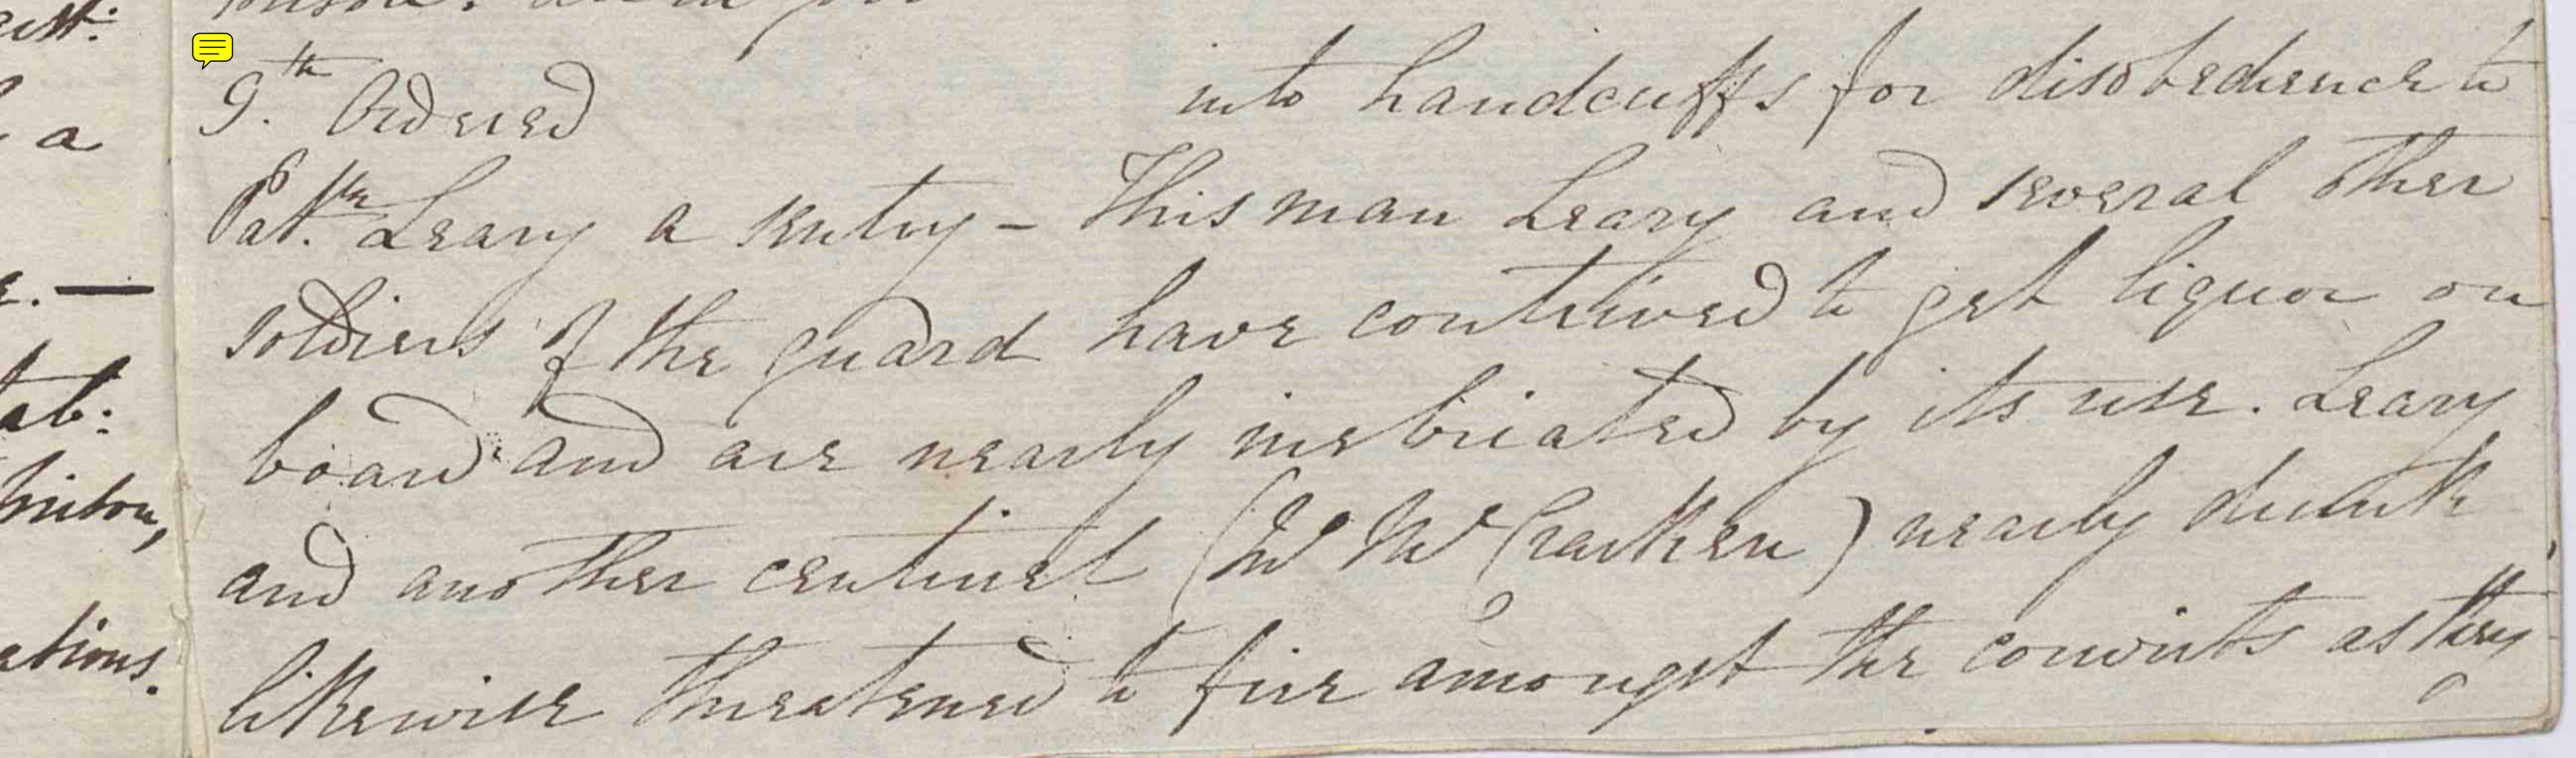 9.th Ordered into handcuffs for disobedience to
Pat.k Leary a sentry – This man Leary and several other
soldiers of the guard have contrived to get liquor on
board and are nearly inebriated by its use. Leary
and another centinel (W McCracken) nearly drunk
likewise threatened to fire amongst the convicts as they
a
prison,
ations.